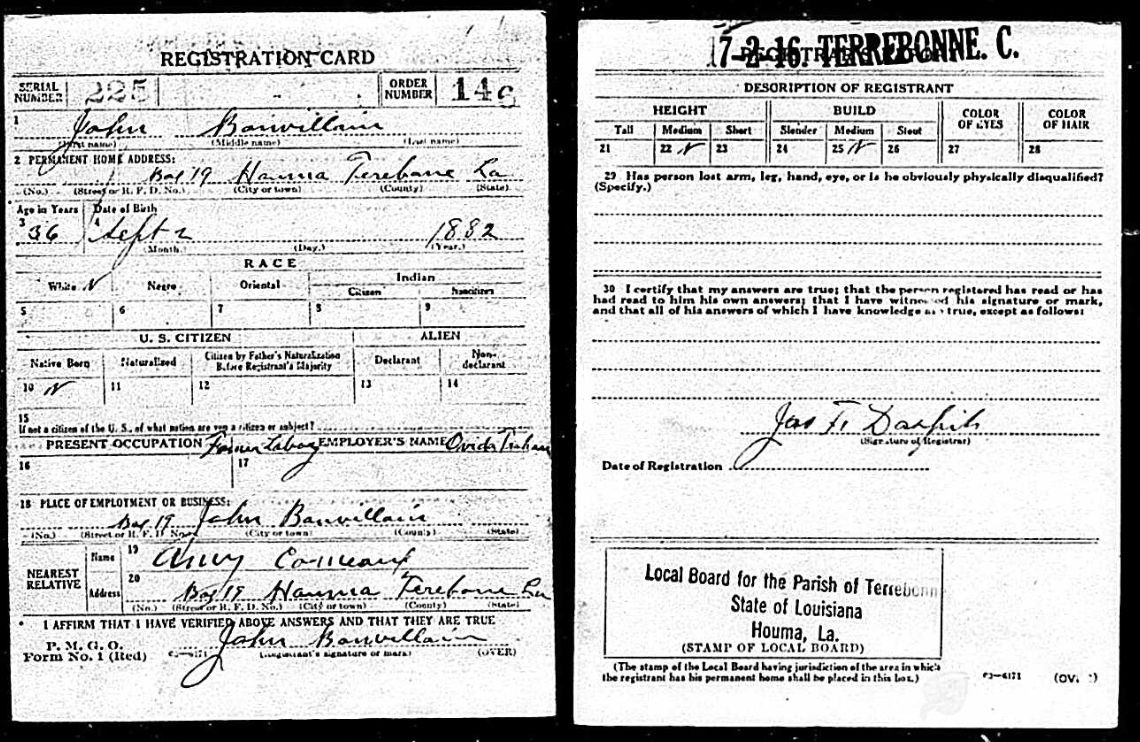 REGISTRATION CARD
SERIAL NUMBER 225 ORDER NUMBER 146
1 John Bonvillain
(First name) (Middle name) (Last name)
2 PERMANENT HOME ADDRESS:
Box 19 Houma Terebone La
(No.) (Street or R. F. D. No.) (City or town) (County) (State)
Age in Years Date of Birth
3 36 4 Sept 2 1882
(Month.) (Day.) (Year.)
RACE
White Negro Oriental Indian
Citizen Noncitizen
5 6 7 8 9
U. S. CITIZEN ALIEN
Native Born Naturalized Citizen by Father's Naturalization Before Registrant's Majority Declarant Non-declarant
10 11 12 13 14
15
If not a citizen of the U. S., of what nation are you a citizen or subject?
PRESENT OCCUPATION EMPLOYER'S NAME
16 17
18 PLACE OF EMPLOYMENT OR BUSINESS:
Box 19 John Bonvillain
(No.) (Street or R. F. D. No.) (City or town) (County) (State)
NEAREST RELATIVE
Name 19 Comeaux
Address 20 Box 19 Houma Terebone La
(No.) (Street or R. F. D. No.) (City or town) (County) (State)
I AFFIRM THAT I HAVE VERIFIED ABOVE ANSWERS AND THAT THEY ARE TRUE
P. M. G. O.
Form No. 1 (Red) 03—6171 John Bonvillain
(Registrant's signature or mark) (OVER)
17-2-16. TERREBONNE. C.
DESCRIPTION OF REGISTRANT
HEIGHT BUILD COLOR OF EYES COLOR OF HAIR
Tall Medium Short Slender Medium Stout
21 22 23 24 25 26 27 28
29 Has person lost arm, leg, hand, eye, or is he obviously physically disqualified?
(Specify.)
30 I certify that my answers are true; that the person registered has read or has
had read to him his own answers; that I have witnessed his signature or mark,
and that all of his answers of which I have knowledge are true, except as follows:
Jas F.
(Signature of Registrar)
Date of Registration
Local Board for the Parish of Terrebonne
State of Louisiana
Houma, La.
(STAMP OF LOCAL BOARD)
(The stamp of the Local Board having jurisdiction of the area in which
the registrant has his permanent home shall be placed in this box.)
03—6171 (OVER)